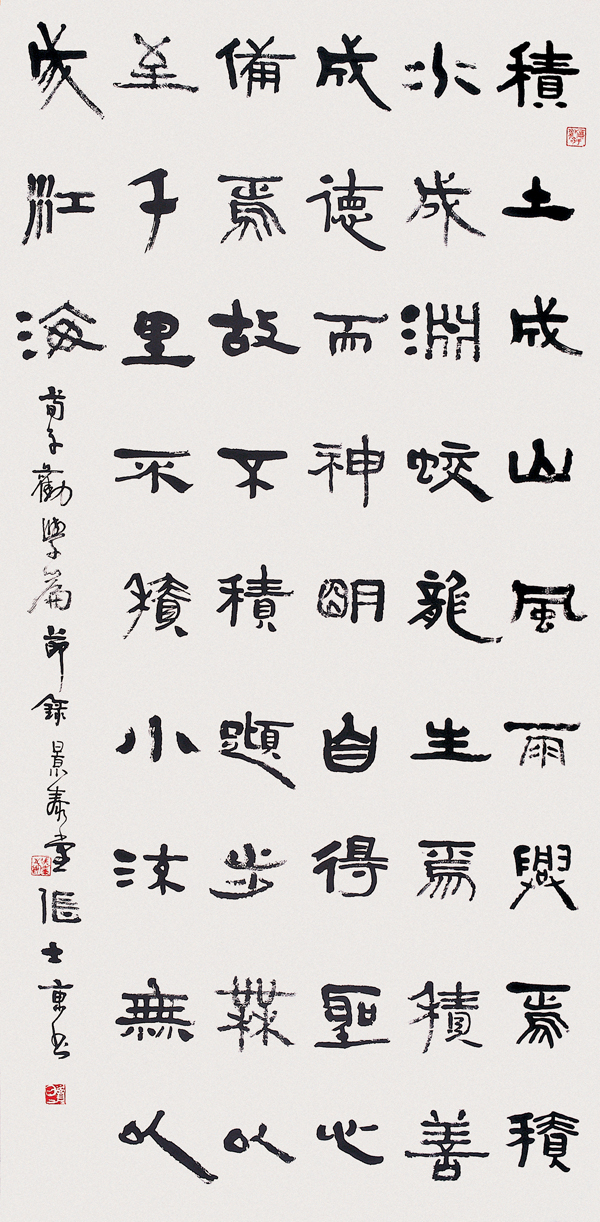 積土成山風雨興焉積
水成淵蛟龍生焉積善
成德而神明自得聖心
備焉故不積蹞步無以
至千里不積小流無以
成江海
荀子勸學篇節録景泰堂張士東書